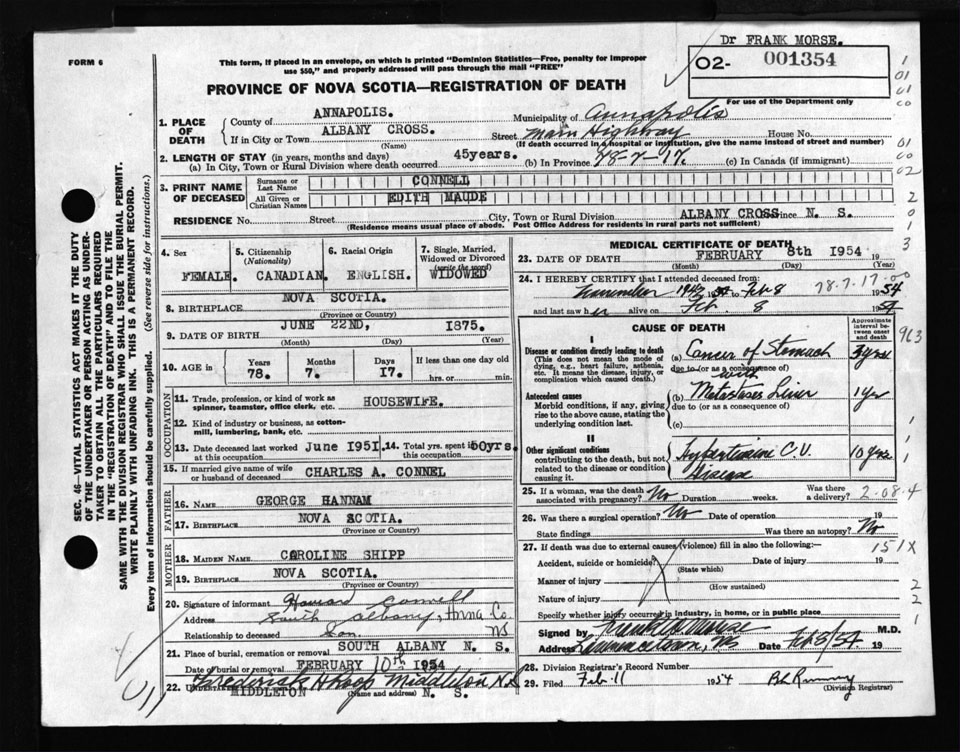 Dr FRANK MORSE.
FORM 6
This form, if placed in an envelope, on which is printed "Dominion Statistics—Free, penalty for improper
use $50," and properly addressed will pass through the mail "FREE"
O2- 001354
PROVINCE OF NOVA SCOTIA—REGISTRATION OF DEATH
For use of Dominion Bureau of Statistics only
1. PLACE OF DEATH
County of ANNAPOLIS. Municipality of Annapolis
If in City or Town ALBANY CROSS. Street Main Highway House No.
(Name) (If death occurred in a hospital or institution, give the name instead of street and number)
2. LENGTH OF STAY (in years, months and days)
(a) In City, Town or Rural Division where death occurred 45years. (b) In Province 78-7-17. (c) In Canada (if immigrant)
3. PRINT NAME OF DECEASED
Surname or Last Name CONNELL
All Given or Christian Names EDITH MAUDE
RESIDENCE No. Street City, Town or Rural Division ALBANY CROSS Province N. S.
(Residence means usual place of abode. Post Office Address for residents in rural parts not sufficient)
4. Sex FEMALE.
5. Citizenship (Nationality) CANADIAN.
6. Racial Origin ENGLISH.
7. Single, Married, Widowed or Divorced (write the word) WIDOWED
8. BIRTHPLACE NOVA SCOTIA.
(Province or Country)
9. DATE OF BIRTH JUNE 22ND, 1875.
(Month) (Day) (Year)
10. AGE in Years 78. Months 7. Days 17. If less than one day old hrs. or min.
OCCUPATION
11. Trade, profession, or kind of work as spinner, teamster, office clerk, etc. HOUSEWIFE.
12. Kind of industry or business, as cotton-mill, lumbering, bank, etc.
13. Date deceased last worked at this occupation June 1951 14. Total yrs. spent in this occupation 50yrs.
15. If married give name of wife or husband of deceased CHARLES A. CONNEL
FATHER
16. NAME GEORGE HANNAM
17. BIRTHPLACE NOVA SCOTIA.
(Province or Country)
MOTHER
18. MAIDEN NAME CAROLINE SHIPP
19. BIRTHPLACE NOVA SCOTIA.
(Province or Country)
20. Signature of informant Howard Connell
Address South Albany, Anna Co. NS
Relationship to deceased Son.
21. Place of burial, cremation or removal SOUTH ALBANY N. S.
Date of burial or removal FEBRUARY 10th 1954
22. Undertaker Frederick Middleton N.S
MIDDLETON N. S.
(Name and address)
MEDICAL CERTIFICATE OF DEATH
23. DATE OF DEATH FEBRUARY 8th 1954 19
(Month) (Day) (Year)
24. I HEREBY CERTIFY that I attended deceased from:
November to Feb 8 1954
78.7.17-00
and last saw her alive on Feb. 8 1954
CAUSE OF DEATH
Approximate interval between onset and death
I
Disease or condition directly leading to death
(This does not mean the mode of dying, e.g., heart failure, asthenia, etc. It means the disease, injury, or complication which caused death.)
(a) Cancer of Stomach
due to (or as a consequence of) with
Antecedent causes
Morbid conditions, if any, giving rise to the above cause, stating the underlying condition last.
(b) Metastases Liver 1 yr
due to (or as a consequence of)
(c)
II
Other significant conditions
contributing to the death, but not related to the disease or condition causing it.
Hypertensive C.V. Disease 10 yrs
25. If a woman, was the death associated with pregnancy? No Duration weeks. Was there a delivery?
2-08-4
26. Was there a surgical operation? No Date of operation 19
State findings Was there an autopsy? No
27. If death was due to external causes (violence) fill in also the following:—
151X
Accident, suicide or homicide? Date of injury 19
(State which)
Manner of injury
(How sustained)
Nature of injury
Specify whether injury occurred in industry, in home, or in public place
Signed by Frank Morse M.D.
Address Lawrencetown, NS Date Feb 8/54 19
28. Division Registrar's Record Number
29. Filed Feb. 11 1954
(Division Registrar)
SEC. 46— VITAL STATISTICS ACT MAKES IT THE DUTY
OF THE UNDERTAKER OR PERSON ACTING AS UNDER-
TAKER TO OBTAIN ALL THE PARTICULARS REQUIRED
IN THE "REGISTRATION OF DEATH" AND TO FILE THE
SAME WITH THE DIVISION REGISTRAR WHO SHALL ISSUE THE BURIAL PERMIT.
WRITE PLAINLY WITH UNFADING INK. THIS IS A PERMANENT RECORD.
Every item of information should be carefully supplied. (See reverse side for instructions.)
963